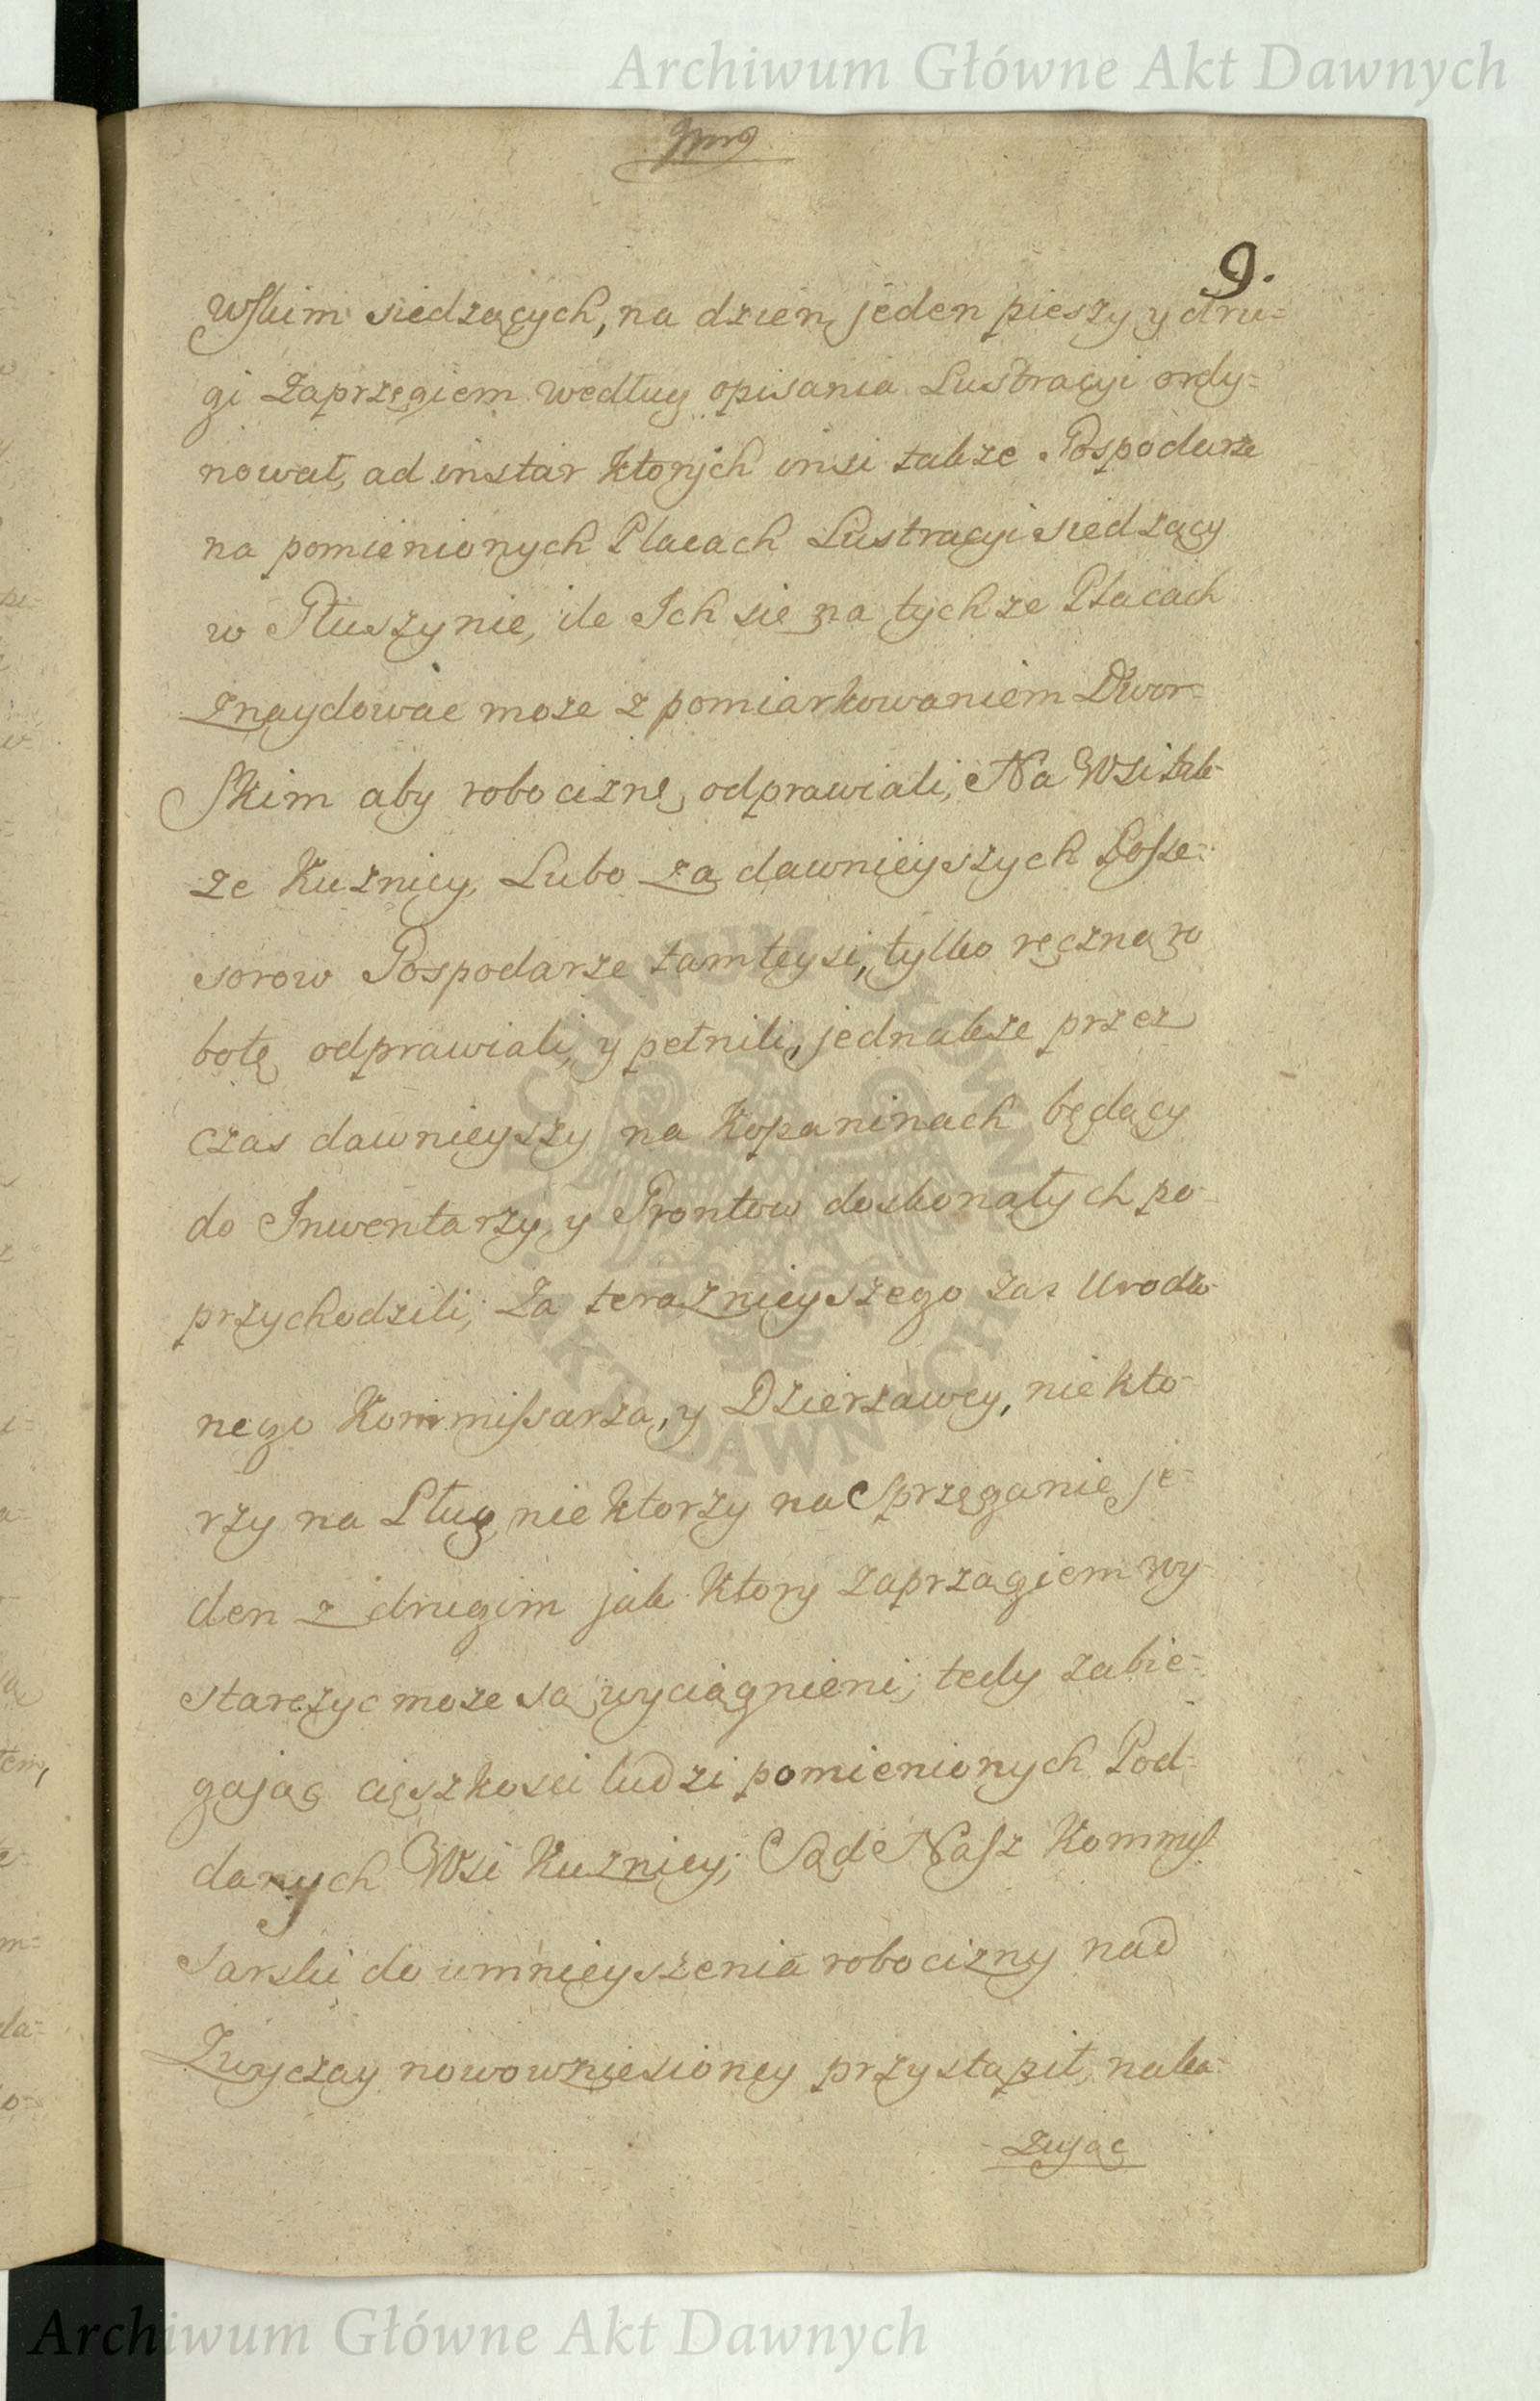 Archiwum Główne Akt Dawnych
9.
wskim siedzących, na dzien jeden pieszy y dru=
gi zaprzęgiem według opisania Lustracyi ordy=
nował, ad instar ktorych insi takze Gospodarze
na pomienionych Placach Lustracyi siedzący
w Głuszynie, ile Ich się na tychze Placach
znaydowac moze z pomiarkowaniem Dwor=
skim aby robociznę odprawiali, Na Wsi tak=
ze Kuznicy, Lubo za dawnieyszych Posse=
sorow Gospodarze tamteysi, tylko ręczną ro
botę odprawiali, y pełnili, jednakze przez
czas dawnieyszy na Kopaninach będący
do Inwentarzy, y Grontow doskonałych po=
przychodzili, za teraznieyszego zas Urodzo=
nego Kommissarza, y Dzierzawcy, niekto=
rzy na Pług niektorzy na Sprzęganie je=
den z drugim jak ktory zaprzągiem wy=
starczyc moze są wyciągnieni; tedy zabie=
gając cięszkosci ludzi pomienionych Pod=
danych Wsi Kuznicy; Sąd Nasz Kommis=
sarski do umnieyszenia robocizny nad
Zwyczay nowowniesioney przystąpił, naka=
zując
ARCHIWUM GŁÓWNE · AKT DAWNYCH ·
Archiwum Główne Akt Dawnych